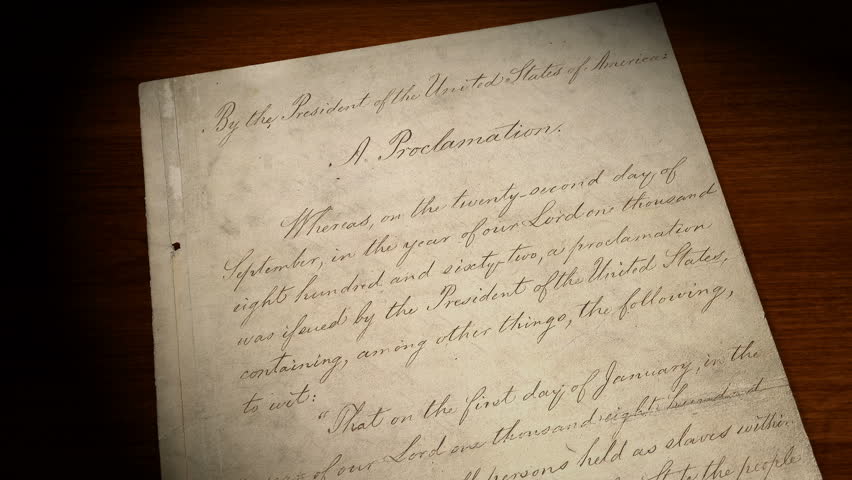 By the President of the United States of America:
A Proclamation.
Whereas, on the twenty-second day of
September, in the year of our Lord one thousand
eight hundred and sixty-two, a proclamation
was issued by the President of the United States,
containing, among other things, the following,
to wit:
"That on the first day of January, in the
of our Lord one thousand eight hundred
persons held as slaves within
State the people